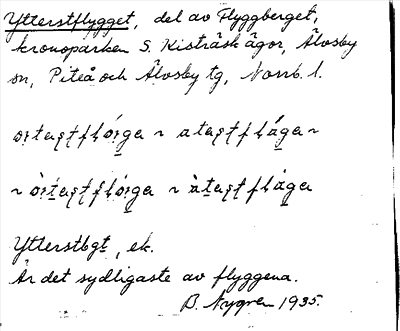 Ytterstflygget, del av Flyggberget,
kronoparken S. Kisträsk ägor, Älvsby
sn, Piteå och Älvsby tg, Norrb. l.
Ytterstbgt, ek.
Är det sydligaste av flyggena.
B. Nygren 1935.